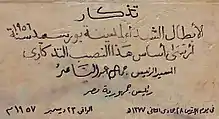 تذكار
لأبطال الشهداء بمدينة بورسعيد سنة ١٩٥٦
أرسى أساس هذا النصب التذكارى
السيد الرئيس جمال عبد الناصر
رئيس جمهورية مصر
فى يوم الإثنين ٢ جمادى الثانى ١٣٧٧ هـ الموافق ٢٣ ديسمبر ١٩٥٧ م